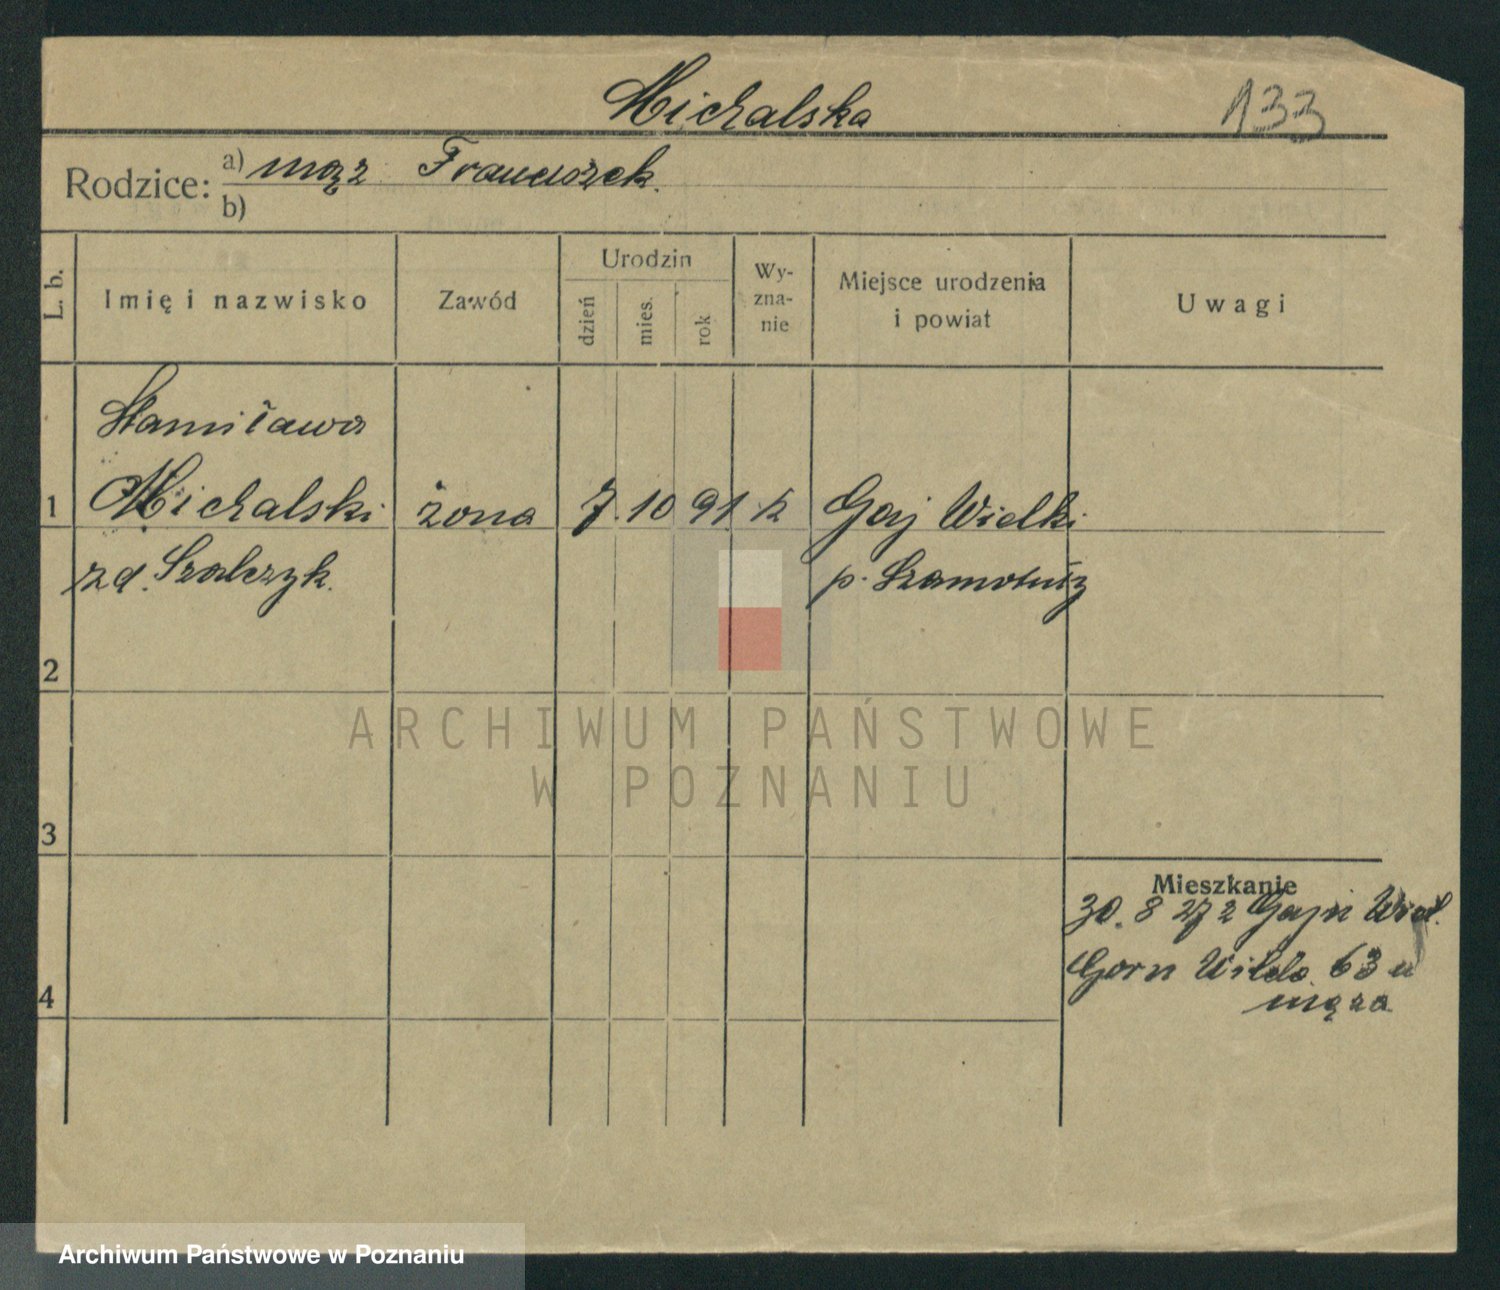 Michalska
133
Rodzice: a) mąż Franciszek.
b)
L. b.
Imię i nazwisko
Zawód
Urodzin
dzień
mies.
rok
Wy-
zna-
nie
Miejsce urodzenia
i powiat
Uwagi
Stanisława
1 Michalski żona 7. 10 91 k Gaj Wielki
zd. Szalczyk. p. Szamotuły
2
3
4
Mieszkanie
30. 8 27 z Gaju Wiel.
Gorn Wilda 63 u
męża
ARCHIWUM PAŃSTWOWE
W POZNANIU
Archiwum Państwowe w Poznaniu